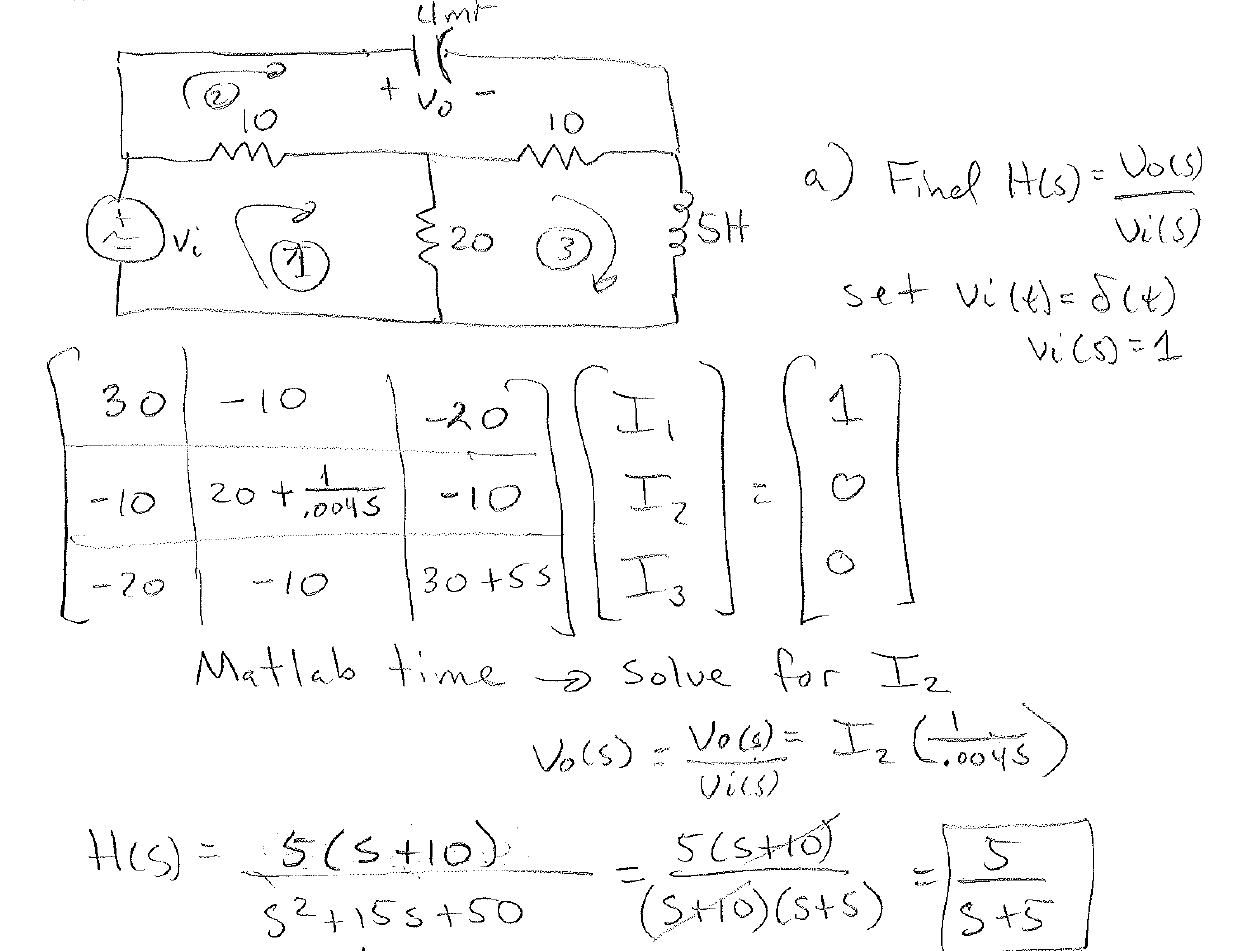 4mF
+ Vo -
②
10
10
+
~
-
Vi
①
20
③
5H
a) Find H(s) = Vo(s)/Vi(s)
set vi(t) = δ(t)
vi(s) = 1
[30 | -10 | -20] [I₁] = [1]
[-10 | 20 + 1/.004s | -10] [I₂] = [0]
[-20 | -10 | 30+5s] [I₃] = [0]
Matlab time → Solve for I₂
Vo(s) = Vo(s)/Vi(s) = I₂ (1/.004s)
H(s) = 5(s+10)/s²+15s+50 = 5(s+10)/(s+10)(s+5) = 5/s+5